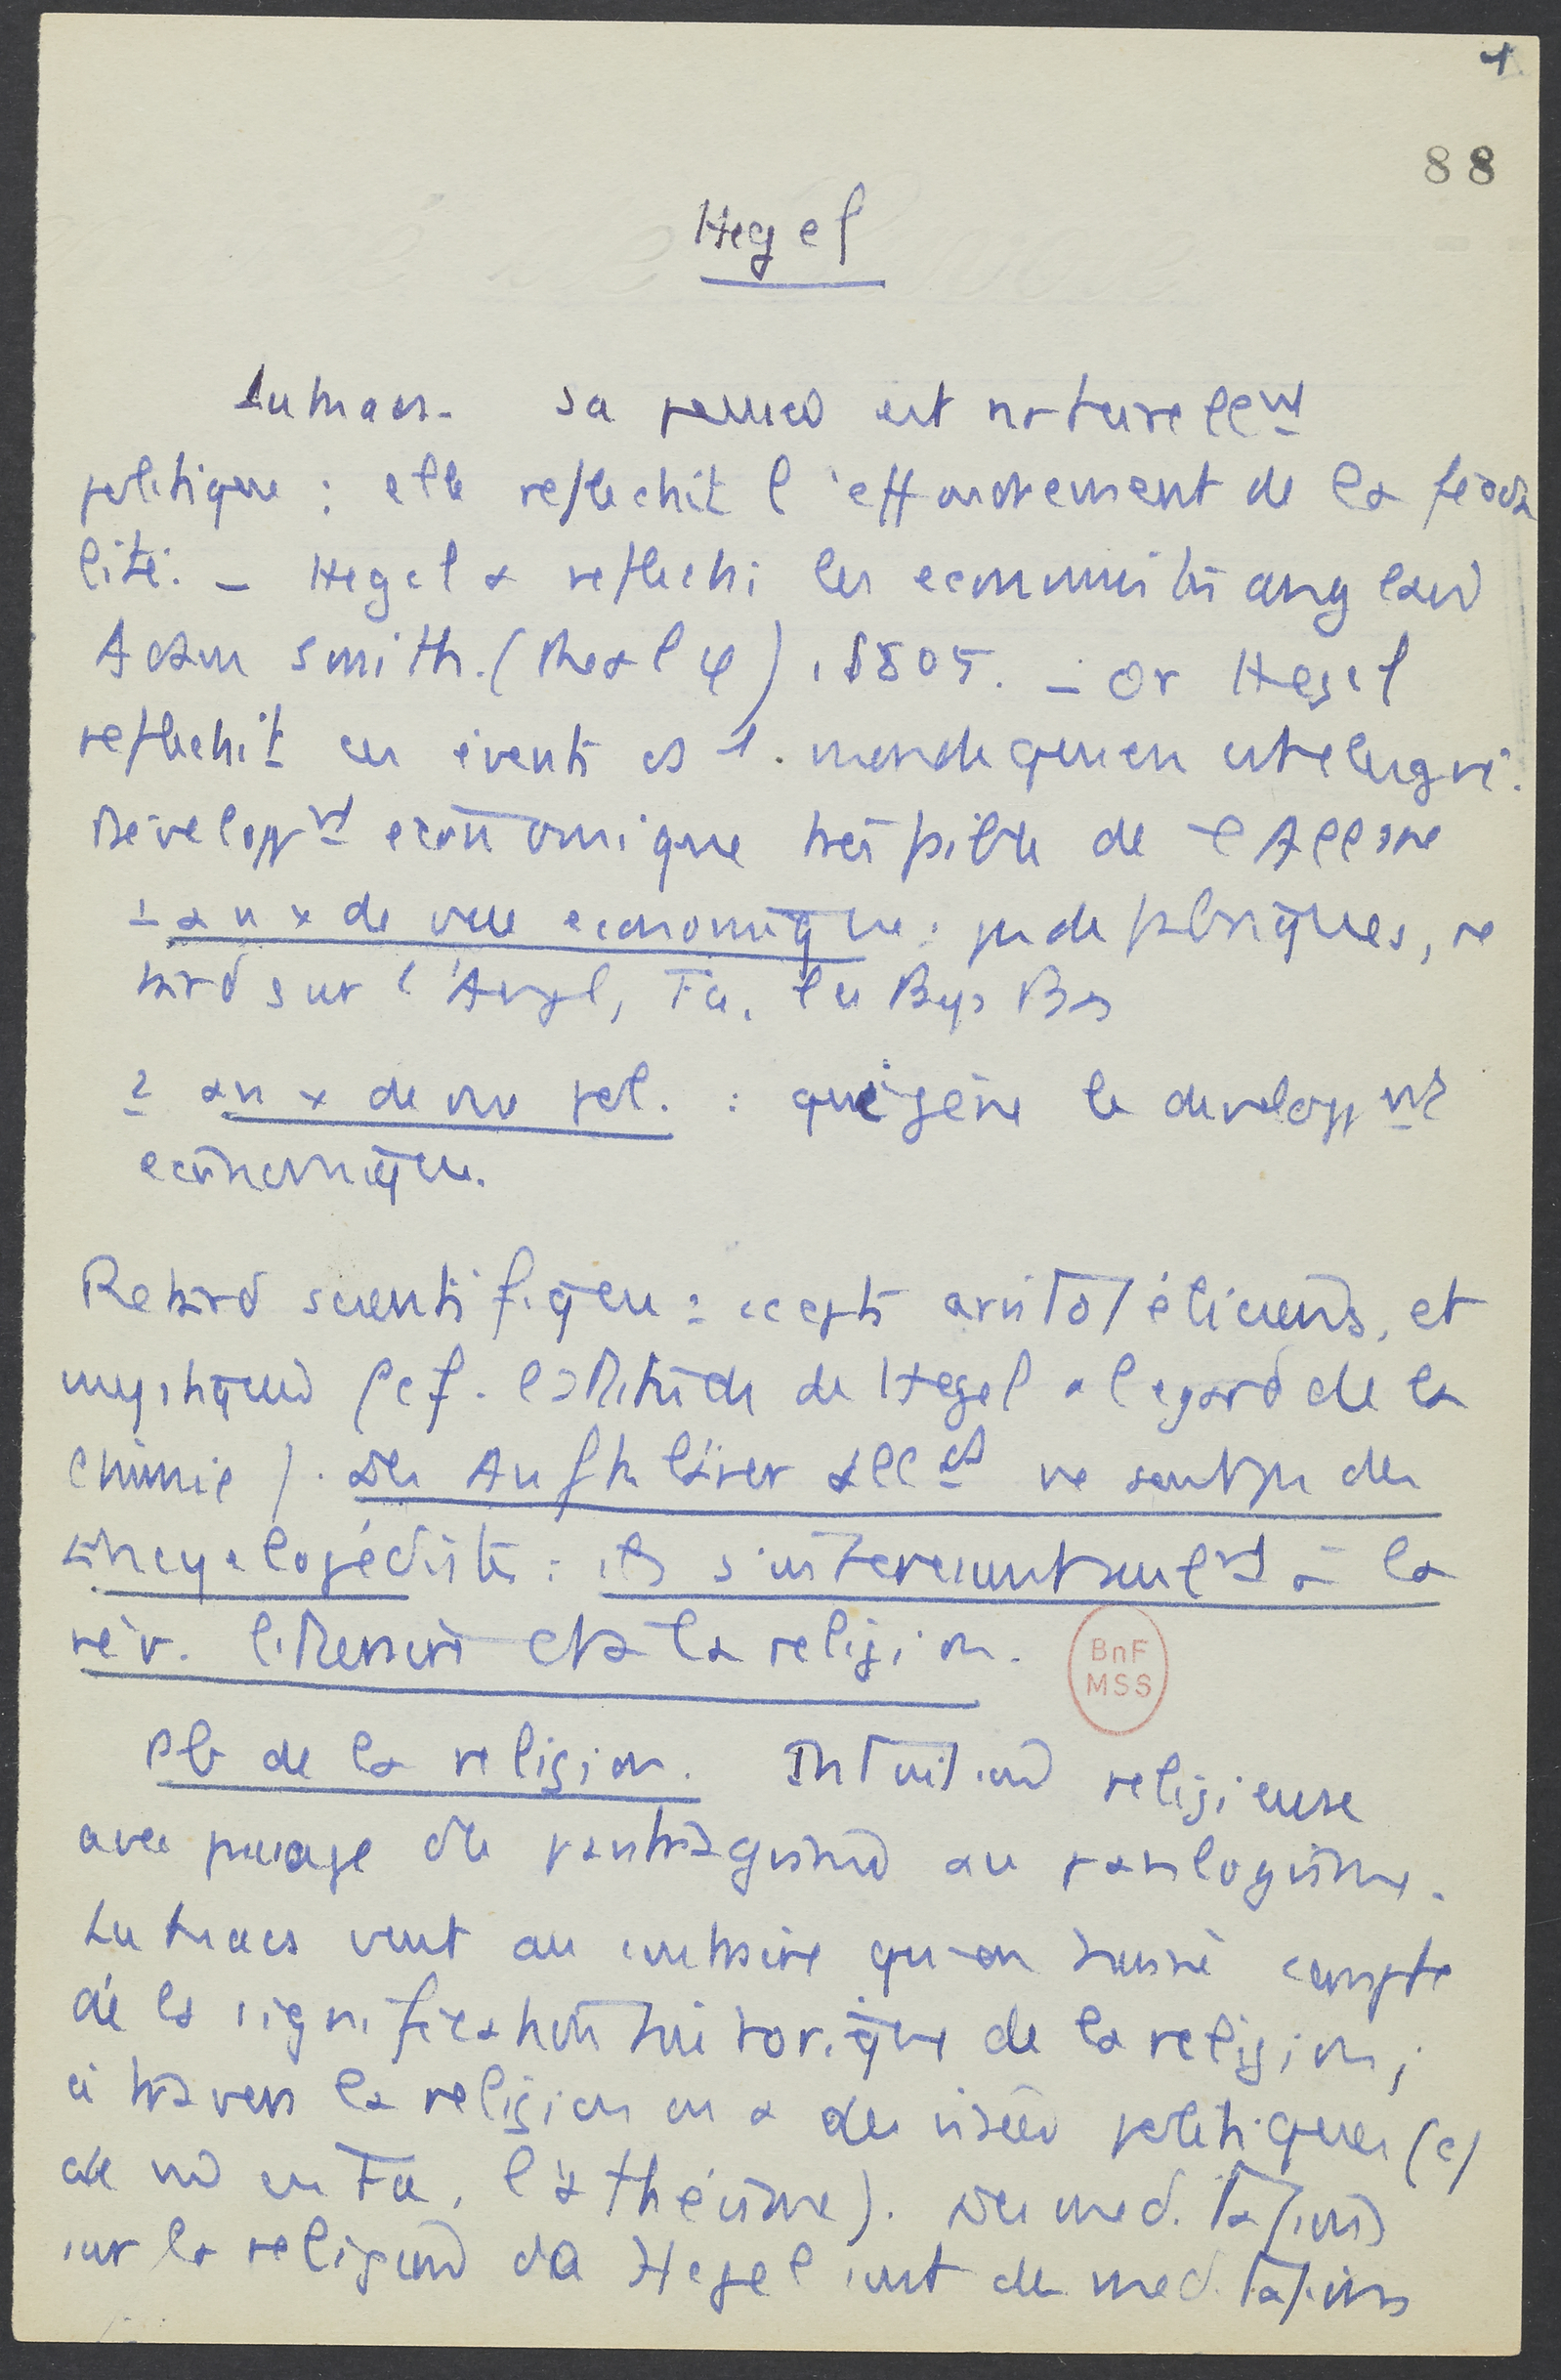 1.
88
Hegel
Lukacs. Sa pensée est naturellemt
politique : elle reflechit l'effondrement de la féoda
lité. – Hegel a reflechi les economistes anglais
Adam Smith. (Real φ) 1805. – Or Hegel
reflechit ces évents ds 1. monde qui en est eloigné.
Développmt economique très faible de l'Allgne
1 au x de vue economique : peu de fabriques, re
tard sur l'Angl, Fce, les Pays Bas
2 au x de vue pol. : qui gêne le developpmt
economique.
Retard scientifique : cepts aristotéliciens, et
mystiques (cf. l'attitude de Hegel a l'egard de la
chimie). Les Aufklärer allds ne sont pas des
Encyclopédistes : ils s'interessent seulmt à la
rév. litteraire et à la religion.
BnF
MSS
Pb de la religion. Intuition religieuse
avec passage du pantragisme au panlogisme.
Lukacs veut au contraire qu'on tienne compte
de la signification historique de la religion ;
à travers la religion on a des visées politiques (c/
en Fce, l'athéisme). Les meditations
sur la religion de Hegel sont des meditations